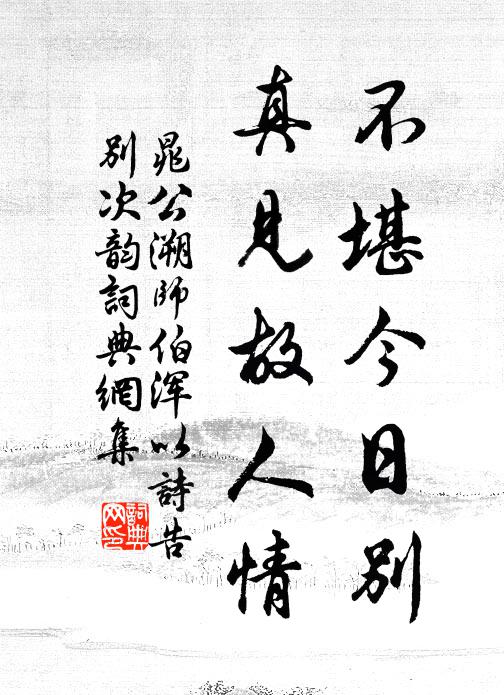 不堪今日别
真見故人情
晁公溯師伯浑以詩告
别次韵詞典網集
詞典
网印